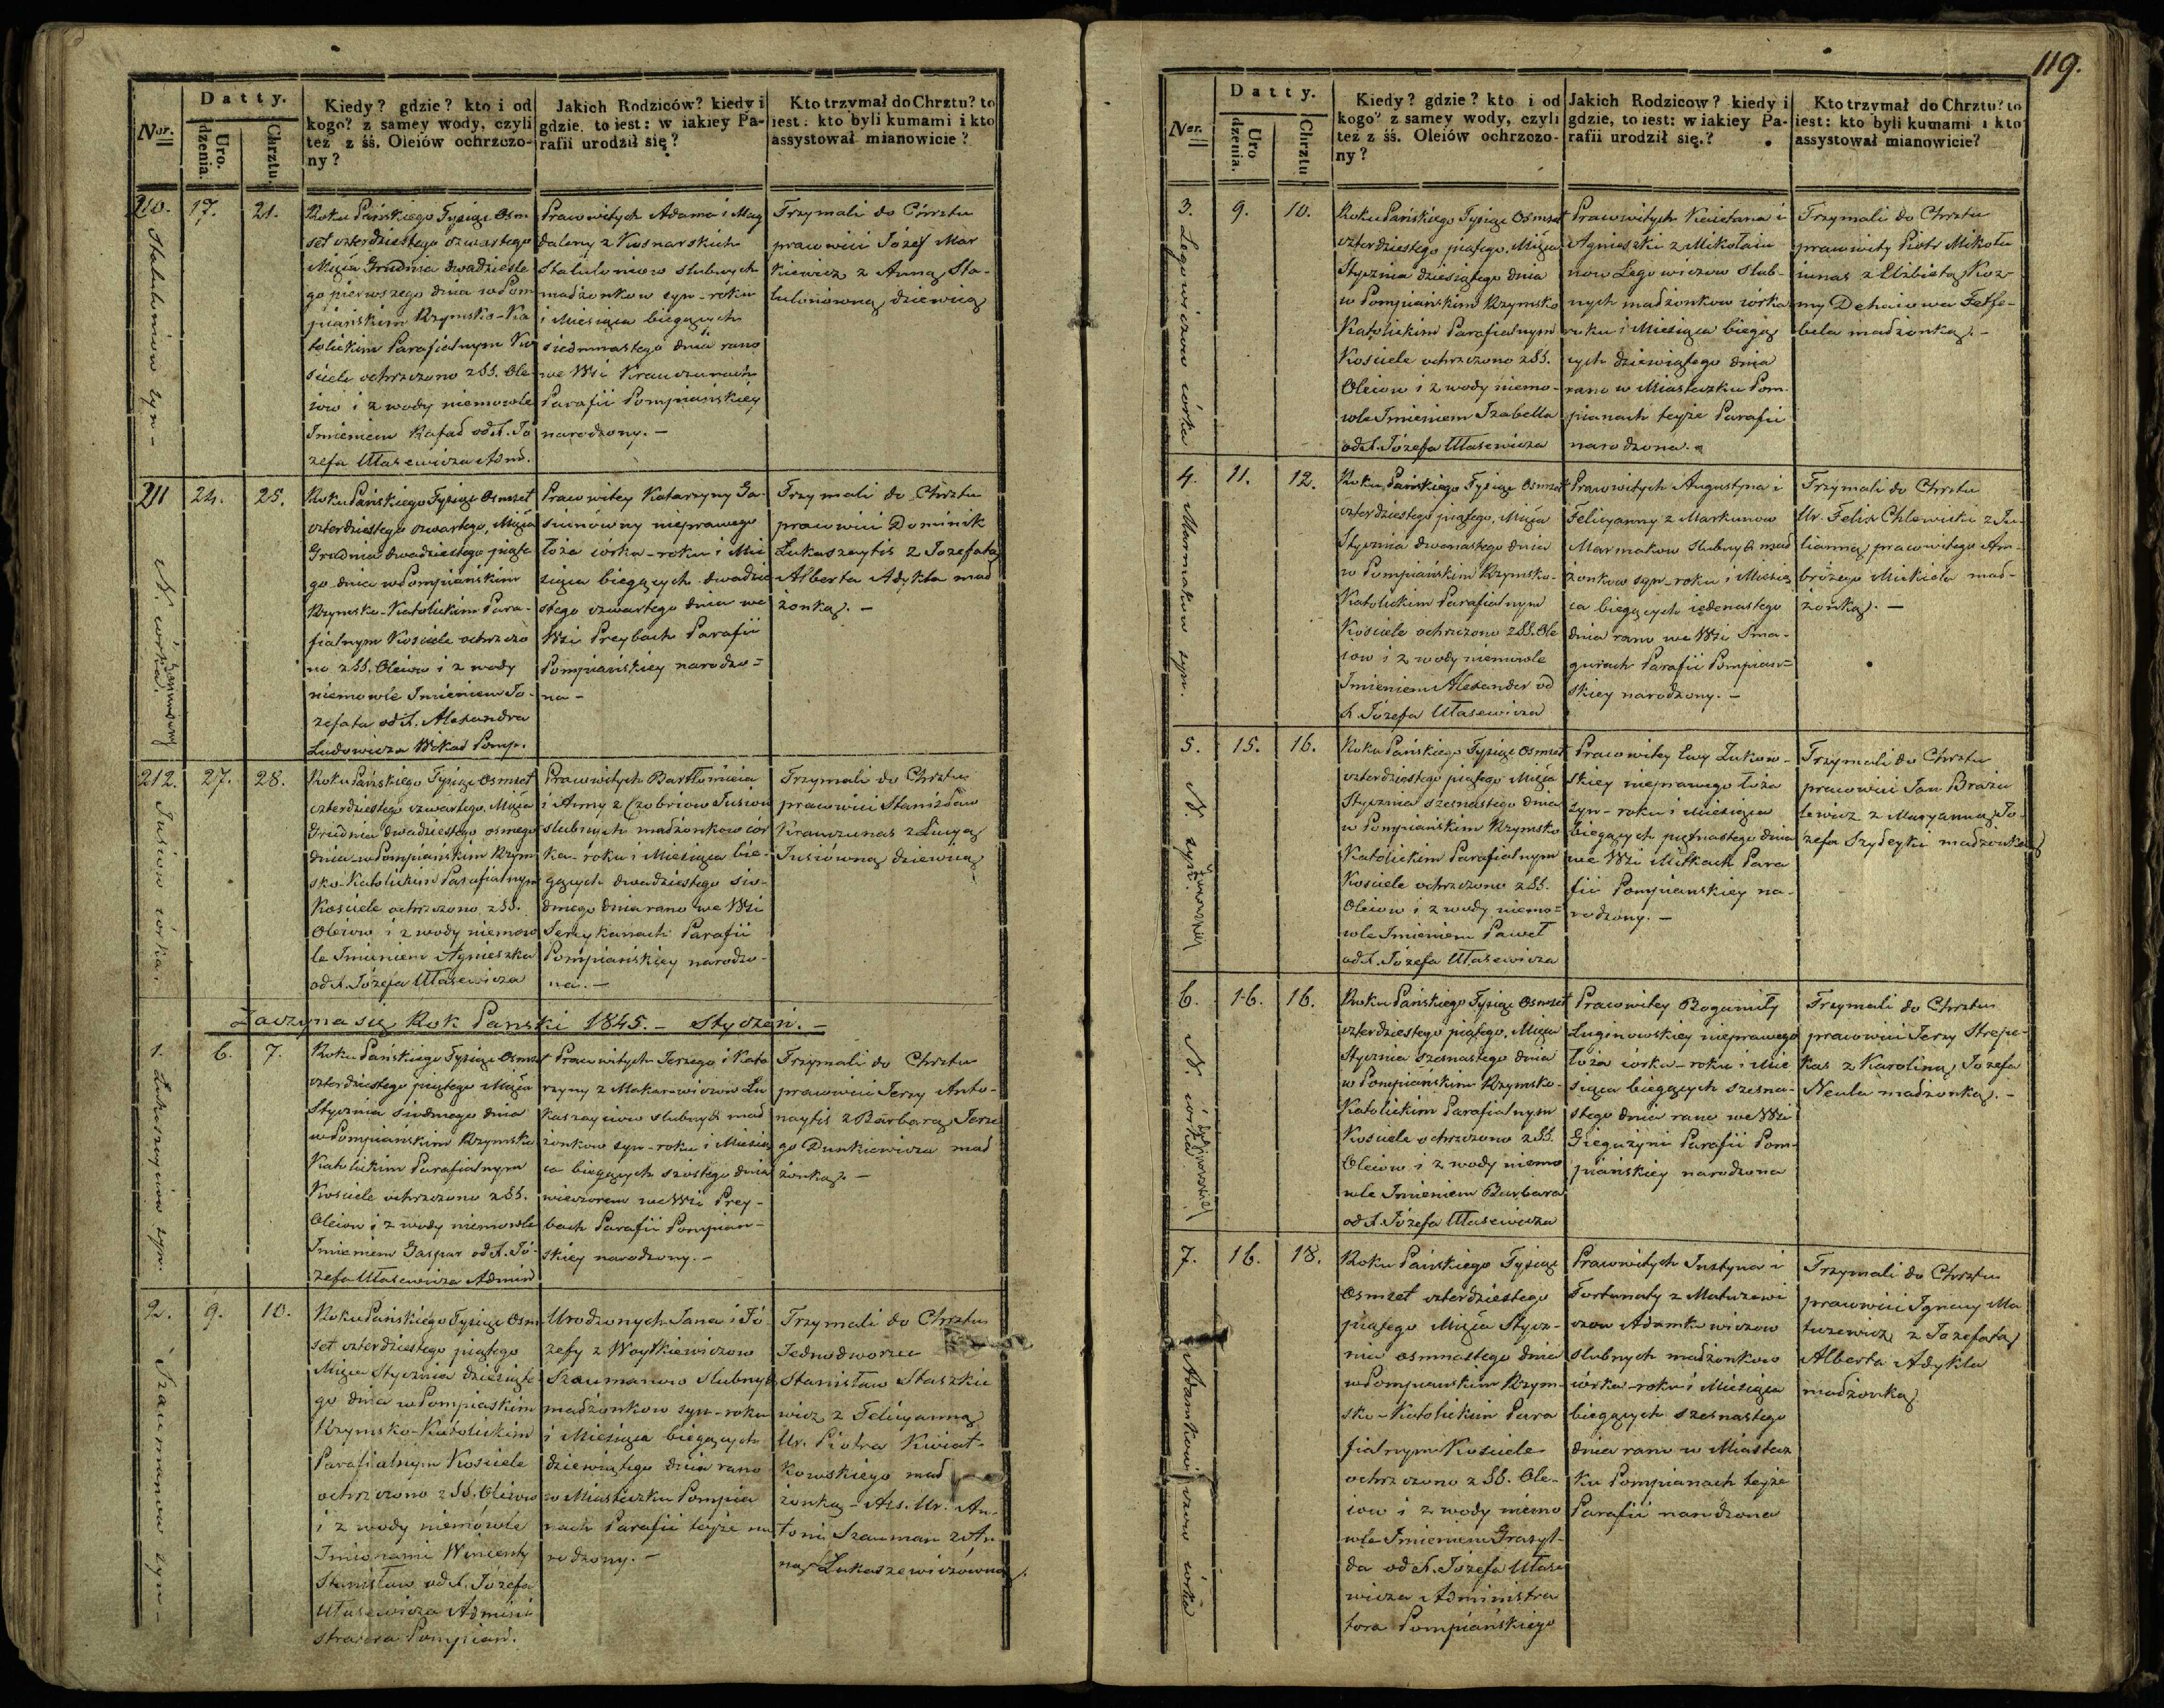 119.
Nor.
Datty.
Uro.
dzenia.
Chrztu.
Kiedy? gdzie? kto i od
kogo? z samey wody, czyli
też z śś. Oleiów ochrzczo-
ny?
Jakich Rodziców? kiedy i
gdzie, to iest: w iakiey Pa-
rafii urodził się?
Kto trzymał do Chrztu? to
iest: kto byli kumami i kto
assystował mianowicie?
210.
17.
21.
Roku Pańskiego Tysiąc Osm
set czterdziestego czwartego
Mięca Grudnia dwadzieste
go pierwszego dnia w Pom
piańskim Rzymsko-Ka
tolickim Parafialnym Ko
sciele ochrzczono z SS. Ole
iow i z wody niemowle
Imieniem Rafał od X. Jo
zefa Ułasewicza Adm.
Prawowitych Adama i Mag
daleny z Kosnarskich
Staluloniow slubnych
małżonkow syn - roku
i Miesiąca biegących
siedmnastego dnia rano
we Wsi Krauczunach
Parafii Pompiańskiey
narodzony. -
Trzymali do Chrztu
prawowici Józef Mar
kiewicz z Anną Sta-
lulonówną dziewicą
211
24.
25.
N. córka.
Roku Pańskiego Tysiąc Osmset
czterdziestego czwartego, Mięca
Grudnia dwadziestego piąte
go dnia w Pompiańskim
Rzymsko-Katolickim Para-
fialnym Kosciele ochrzczo
no z SS. Oleiow i z wody
niemowle Imieniem Jo-
zefata od X. Alexandra
Ludowicza Wikar Pomp.
Prawowitey Katarzyny Ga-
siunówny nieprawego
łoża córka - roku i Mie
siąca biegących dwadzie
stego czwartego dnia we
Wsi Preybach Parafii
Pompiańskiey narodzo=
na -
Trzymali do Chrztu
prawowici Dominik
Łukaszaytis z Jozefatą
Alberta Adykla mał
żonką. -
212.
27.
28.
Jusiow córka.
Roku Pańskiego Tysiąc Osmset
czterdziestego czwartego, Mięca
Grudnia dwadziestego osmego
dnia w Pompiańskim Rzym
sko-Katolickim Parafialnym
Kosciele ochrzczono z SS.
Oleiow i z wody niemow
le Imieniem Agnieszka
od X. Józefa Ułasewicza
Prawowitych Bartłomieia
i Anny z Czobriow Jusiow
slubnych małżonkow cór
ka - roku i Miesiąca bie-
gących dwadziestego siu-
dmego dnia rano we Wsi
Serykanach Parafii
Pompiańskiey narodzo-
na. -
Trzymali do Chrztu
prawowici Stanisław
Krauczunas z Łucyą
Jusiówną dziewicą
Zaczyna się Rok Pański 1845. - Styczeń. -
1.
6.
7.
Łukaszayciow syn.
Roku Pańskiego Tysiąc Osmset
czterdziestego piątego Mięca
Stycznia siódmego dnia
w Pompiańskim Rzymsko
Katolickim Parafialnym
Kosciele ochrzczono z SS.
Oleiow i z wody niemowle
Imieniem Gaspar od X. Jó-
zefa Ułasewicza Admin
Prawowitych Jerzego i Kata
rzyny z Makarewiczow Łu
kaszayciow slubnych mał
żonkow syn - roku i Miesią
ca biegących szóstego dnia
wieczorem we Wsi Prey-
bach Parafii Pompian-
skiey narodzony. -
Trzymali do Chrztu
prawowici Jerzy Anto-
naytis z Barbarą Jerze
go Dunkiewicza mał
żonką. -
2.
9.
10.
Szaumanow syn -
Roku Pańskiego Tysiąc Osm
set czterdziestego piątego
Mięca Stycznia dziesiąte
go dnia w Pompiaskim
Rzymsko-Katolickim
Parafialnym Kosciele
ochrzczono z SS. Oleiow
i z wody niemowle
Imionami Wincenty
Stanisław od X. Józefa
Ułasewicza Admini
stratora Pompian.
Urodzonych Jana i Jó
zefy z Woytkiewiczow
Szaumanow slubnych
małżonkow syn - roku
i Miesiąca biegących
dziewiątego dnia rano
w Miasteczku Pompia
nach Parafii teyże na
rodzony. -
Trzymali do Chrztu
Jednodworzec
Stanisław Staszkie
wicz z Felicyanną
Ur. Piotra Kwiat-
kowskiego mał
żonką - Ass. Ur. An-
toni Szauman z An
ną Łukaszewiczówną.
Nor.
Datty.
Uro
dzenia.
Chrztu
Kiedy? gdzie? kto i od
kogo? z samey wody, czyli
też z śś. Oleiów ochrzczo-
ny?
Jakich Rodzicow? kiedy i
gdzie, to iest: w iakiey Pa-
rafii urodził się?
Kto trzymał do Chrztu? to
iest: kto byli kumami i kto
assystował mianowicie?
3.
9.
10.
Legowiczow córka
Roku Pańskiego Tysiąc Osmset
czterdziestego piątego, Mięca
Stycznia dziesiątego dnia
w Pompiańskim Rzymsko
Katolickim Parafialnym
Kosciele ochrzczono z SS.
Oleiow i z wody niemo-
wle Imieniem Izabella
od X. Józefa Ułasewicza
Prawowitych Kaietana i
Agnieszki z Mikołaiu
now Legowiczow slub-
nych małżonkow córka
roku i Miesiąca biegą
cych dziewiątego dnia
rano w Miasteczku Pom-
pianach teyże Parafii
narodzona.
Trzymali do Chrztu
prawowity Piotr Mikołu
iunas z Elżbietą Koz-
my Felse-
bela małżonką. -
4.
11.
12.
Marmakow syn.
Roku Pańskiego Tysiąc Osmset
czterdziestego piątego, Mięca
Stycznia dwonastego dnia
w Pompiańskim Rzymsko-
Katolickim Parafialnym
Kosciele ochrzczono z SS. Ole
iow i z wody niemowle
Imieniem Alexander od
X. Józefa Ułasewicza
Prawowitych Augustyna i
Felicyanny z Markunow
Marmakow slubnych mał
żonkow syn - roku i Miesią
ca biegących iedenastego
dnia rano we Wsi Sma-
gurach Parafii Pompian=
skiey narodzony. -
Trzymali do Chrztu
Ur. Felix Chlewicki z Ju-
lianną prawowitego Am-
brożego Mickiela mał-
żonką. -
5.
15.
16.
N. syn.
Żukowskiey
Roku Pańskiego Tysiąc Osmset
czterdziestego piątego Mięca
Stycznia szesnastego dnia
w Pompiańskim Rzymsko
Katolickim Parafialnym
Kosciele ochrzczono z SS.
Oleiow i z wody niemo=
wle Imieniem Paweł
od X. Józefa Ułasewicza
Prawowitey Ewy Żukow-
skiey nieprawego łoża
syn - roku i Miesiąca
biegących piętnastego dnia
we Wsi Mitkach Para
fii Pompianskiey na-
rodzony. -
Trzymali do Chrztu
prawowici Jan Braziu
lewicz z Maryanną Jo-
zefa Szydeyki małżonką
6.
16.
16.
N. córka
Ługinowskiey
Roku Pańskiego Tysiąc Osmset
czterdziestego piątego, Mięca
Stycznia szesnastego dnia
w Pompiańskim Rzymsko-
Katolickim Parafialnym
Kosciele ochrzczono z SS.
Oleiow i z wody niemo
wle Imieniem Barbara
od X. Józefa Ułasewicza
Prawowitey Bogumiły
Ługinowskiey nieprawego
łoża córka - roku i Mie
siąca biegących szesna-
stego dnia rano we Wsi
Gieguzyni Parafii Pom-
piańskiey narodzona
Trzymali do Chrztu
prawowici Jerzy Strepe-
kas z Karoliną Jozefa
Neula małżonką. -
7.
16.
18.
Adamkowiczow córka
Roku Pańskiego Tysiąc
Osmset czterdziestego
piątego Mięca Stycz-
nia osmnastego dnia
w Pompianskim Rzym-
sko-Katolickim Para
fialnym Kosciele
ochrzczono z SS. Ole-
iow i z wody niemo
wle Imieniem Grazyl-
da od X. Józefa Ułase
wicza Administra
tora Pompiańskiego
Prawowitych Justyna i
Fortunaty z Matuzewi
czow Adamkowiczow
slubnych małżonkow
córka - roku i Miesiąca
biegących szesnastego
dnia rano w Miastecz
ku Pompianach teyże
Parafii narodzona
Trzymali do Chrztu
prawowici Ignacy Ma
tuzewicz z Jozefatą
Alberta Adykla
małżonką